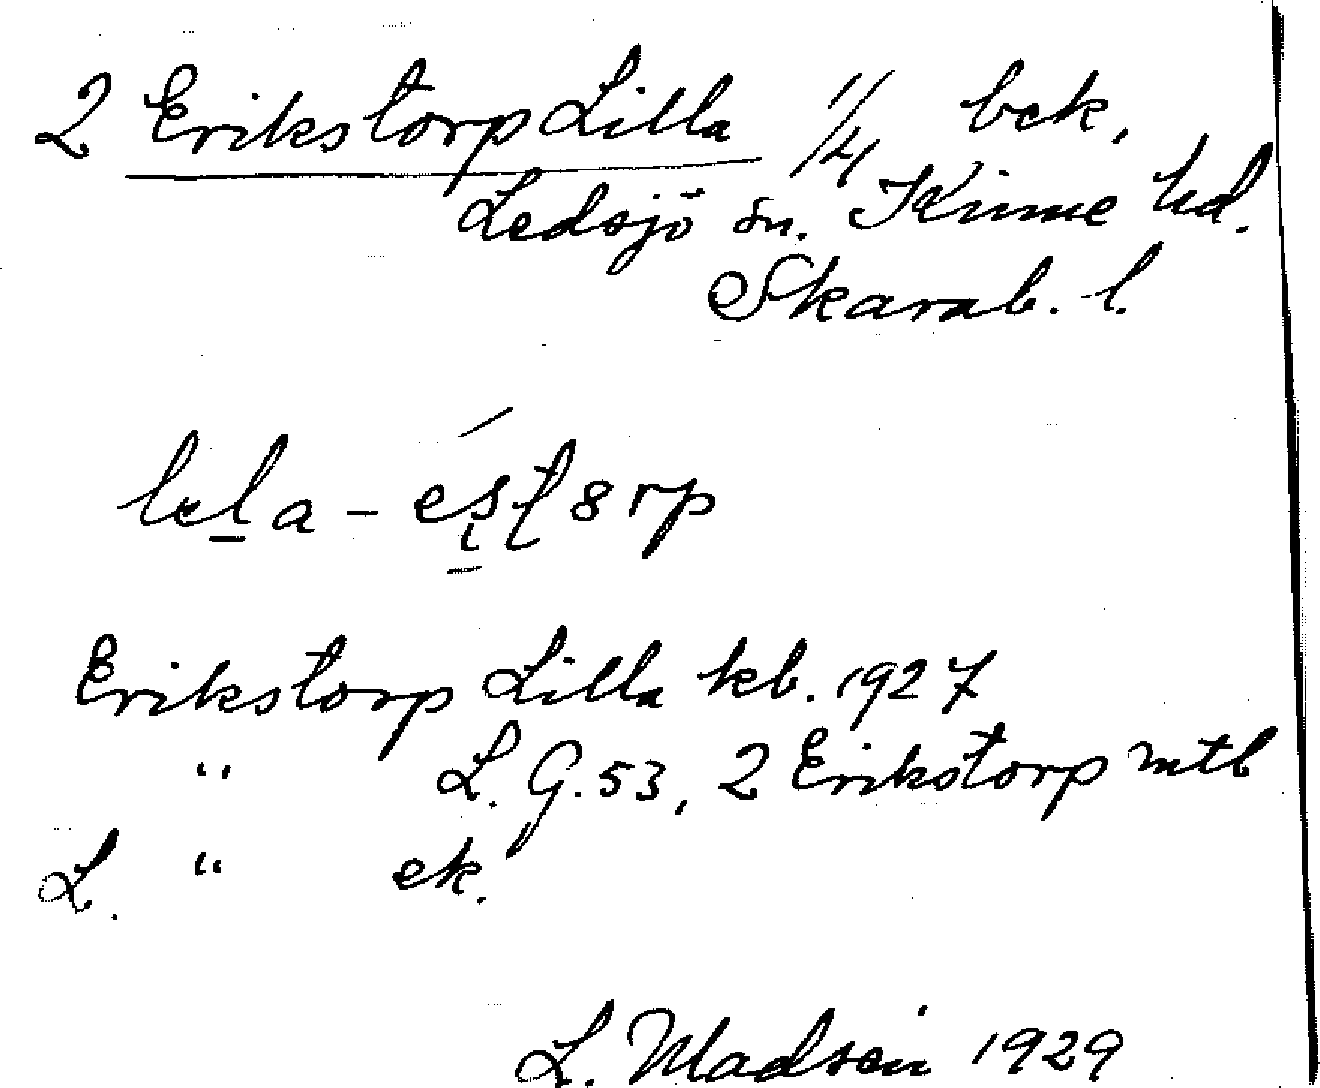 2 Erikstorp Lilla 1/4 bek.
Ledsjö sn. Kinne hd.
Skarab. l.
lela - éstorp
Erikstorp Lilla kb. 1927
" L. G. 53, 2 Erikstorp mtl
L. " ek.
L. Madsén 1929